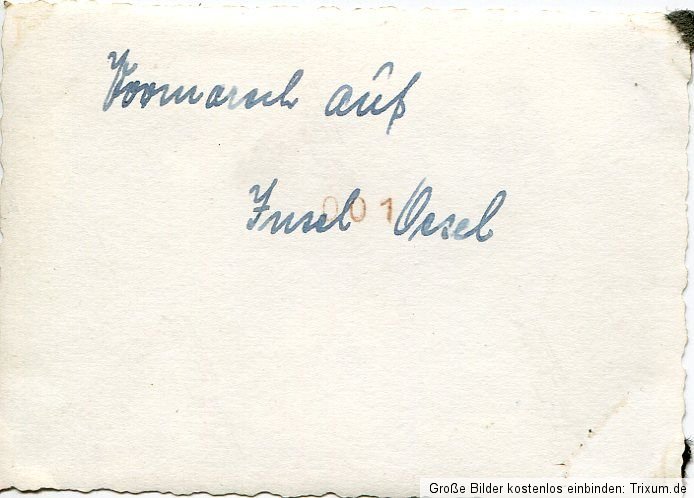 Vormarsch auf
Insel Oesel
001
Große Bilder kostenlos einbinden: Trixum.de